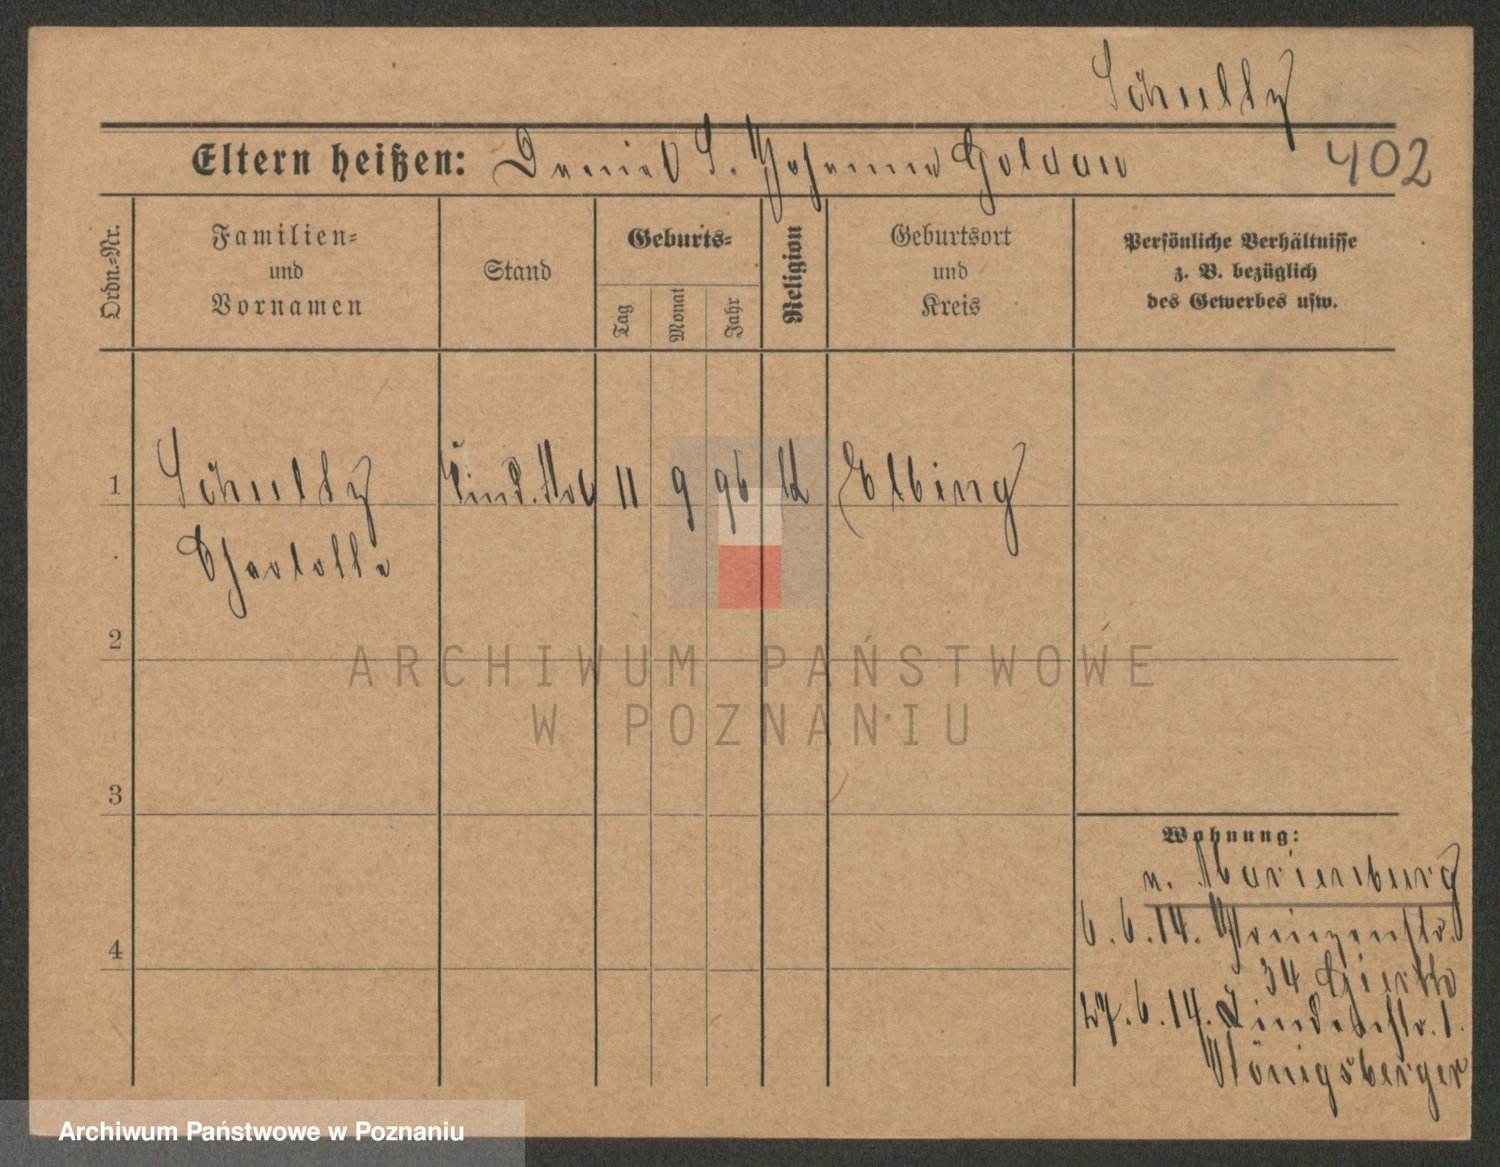 Schultz
402
Eltern heißen: Daniel S. Johanna Goldau
Ordn.-Nr.
Familien-
und
Vornamen
Stand
Geburts-
Tag
Monat
Jahr
Religion
Geburtsort
und
Kreis
Persönliche Verhältnisse
z. B. bezüglich
des Gewerbes usw.
1
Schultz
11
9
96
Elbing
Charlotte
2
ARCHIWUM PAŃSTWOWE
W POZNANIU
3
Wohnung:
v. Marienburg
6.6.14. Prinzenstr.
34
4
27.6.14. Lindenstr. 1.
Königsberger
Archiwum Państwowe w Poznaniu